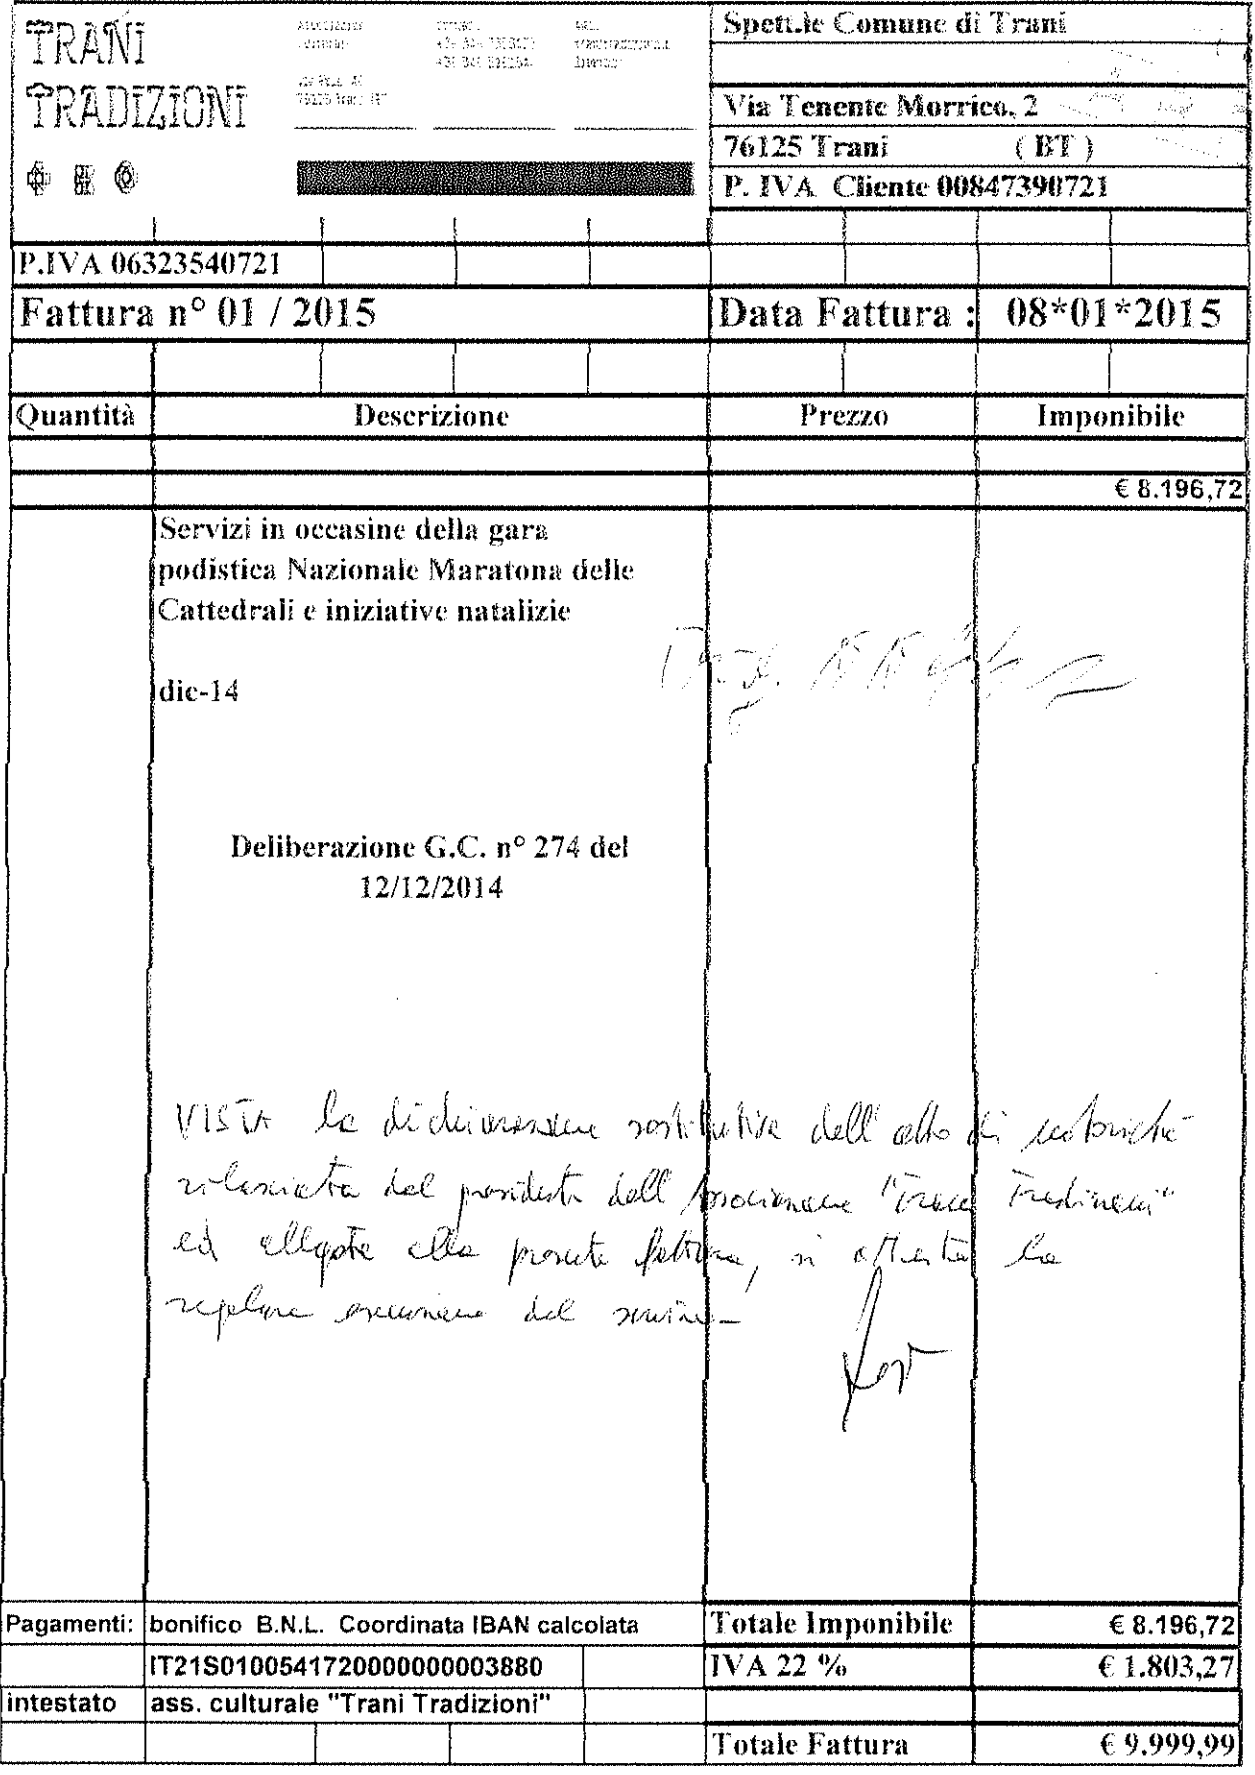 TRANI
TRADIZIONI
Spett.le Comune di Trani
Via Tenente Morrico, 2
76125 Trani ( BT )
P. IVA Cliente 00847390721
P.IVA 06323540721
Fattura n° 01 / 2015 Data Fattura : 08*01*2015
Quantità Descrizione Prezzo Imponibile
€ 8.196,72
Servizi in occasine della gara
podistica Nazionale Maratona delle
Cattedrali e iniziative natalizie
dic-14
Deliberazione G.C. n° 274 del
12/12/2014
VISTA la dichiarazione sostitutiva dell'atto di notorietà
rilasciata dal presidente dell'Associazione "Trani Tradizioni"
ed allegata alla presente fattura, si attesta la
regolare esecuzione del servizio-
Pagamenti: bonifico B.N.L. Coordinata IBAN calcolata Totale Imponibile € 8.196,72
IT21S0100541720000000003880 IVA 22 % € 1.803,27
intestato ass. culturale "Trani Tradizioni"
Totale Fattura € 9.999,99